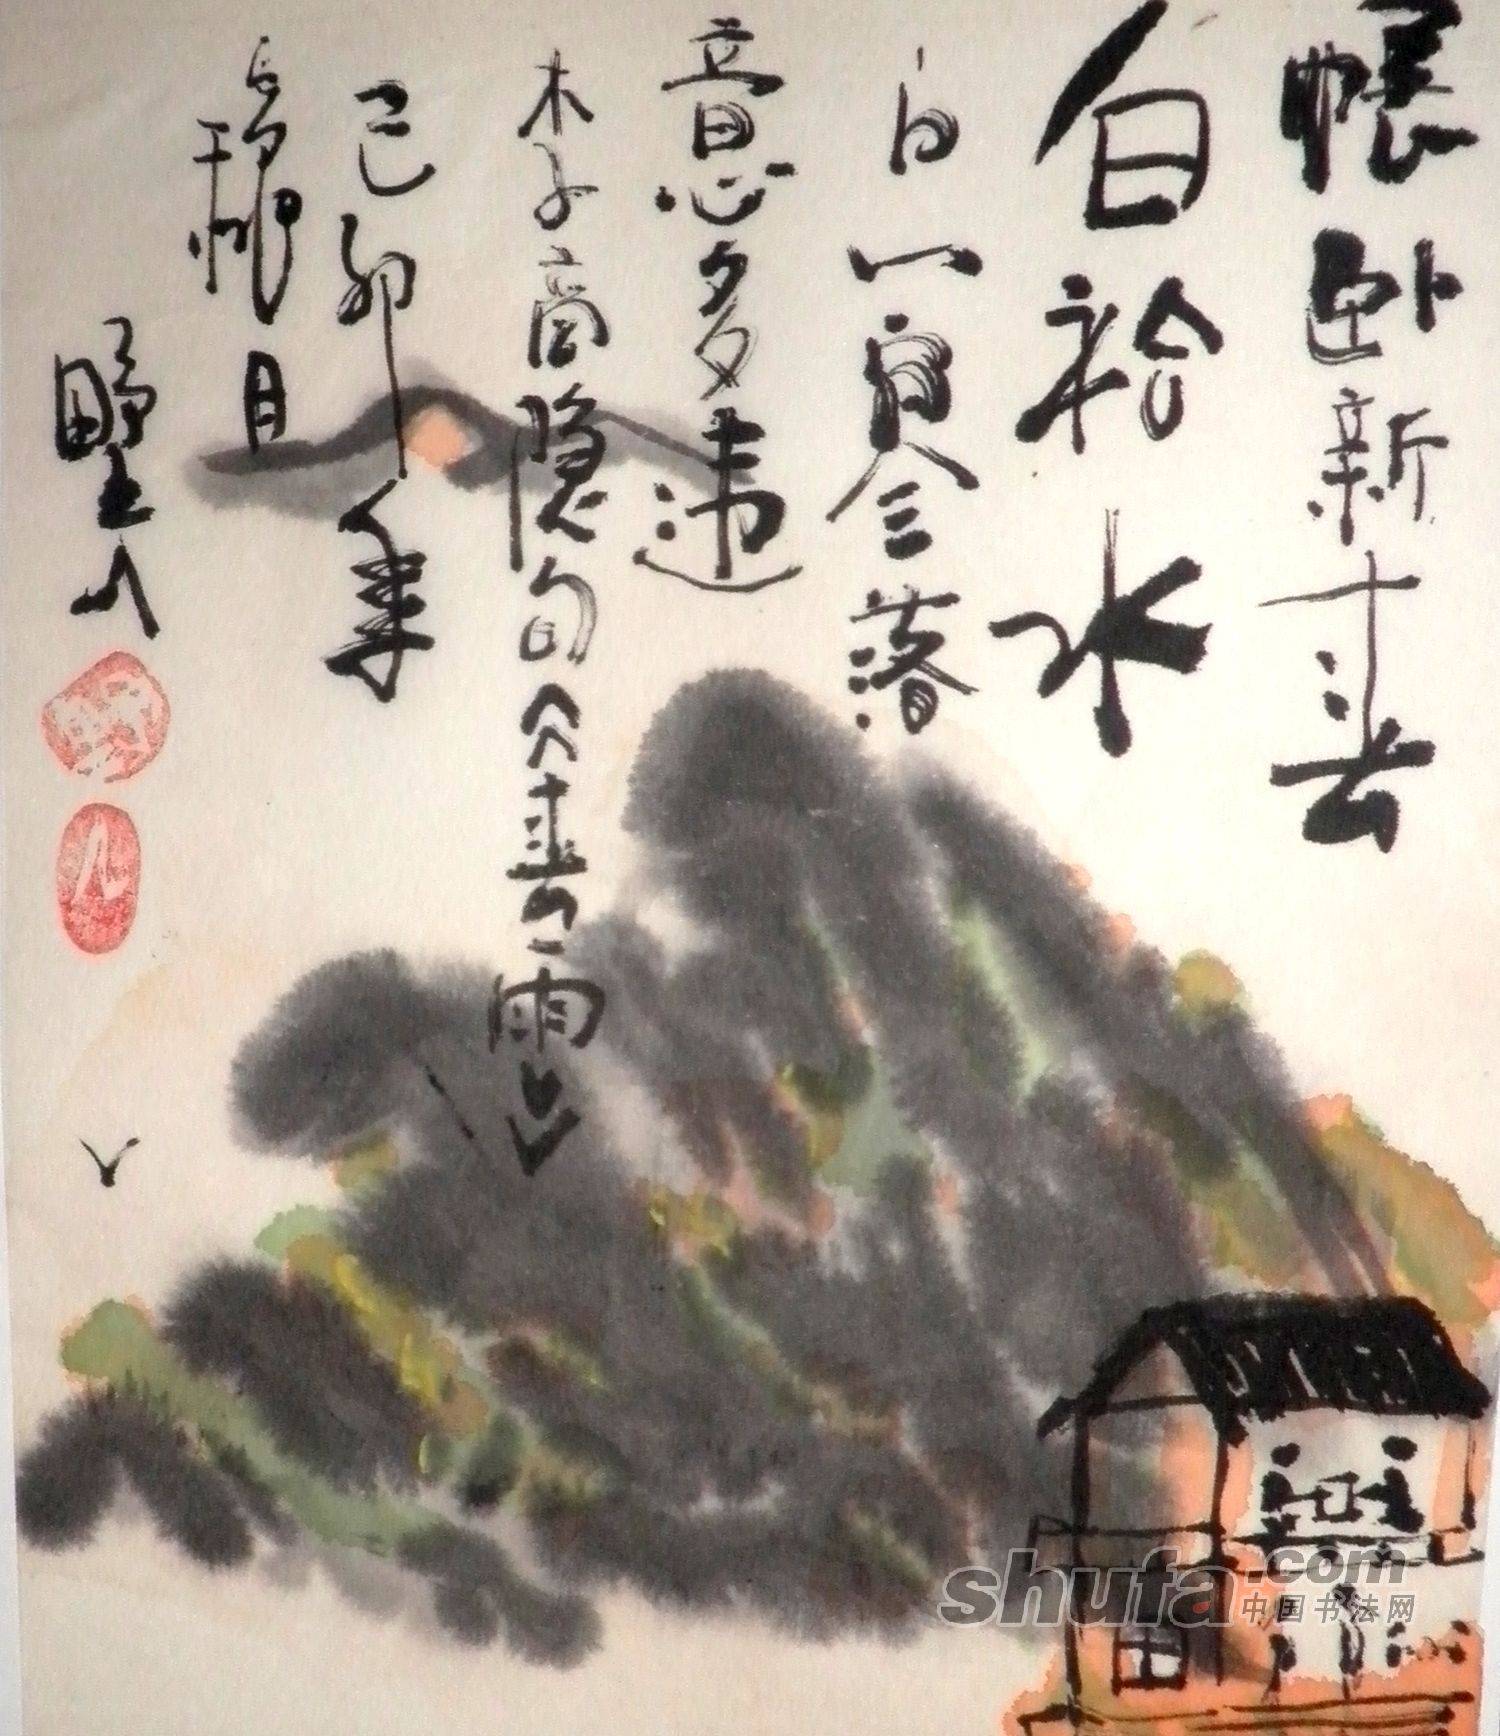 帳卧新春
白袷水
白门寥落
意多违
李商隐句《春雨》
己卯年
月
墅人
shufa.com
中国书法网